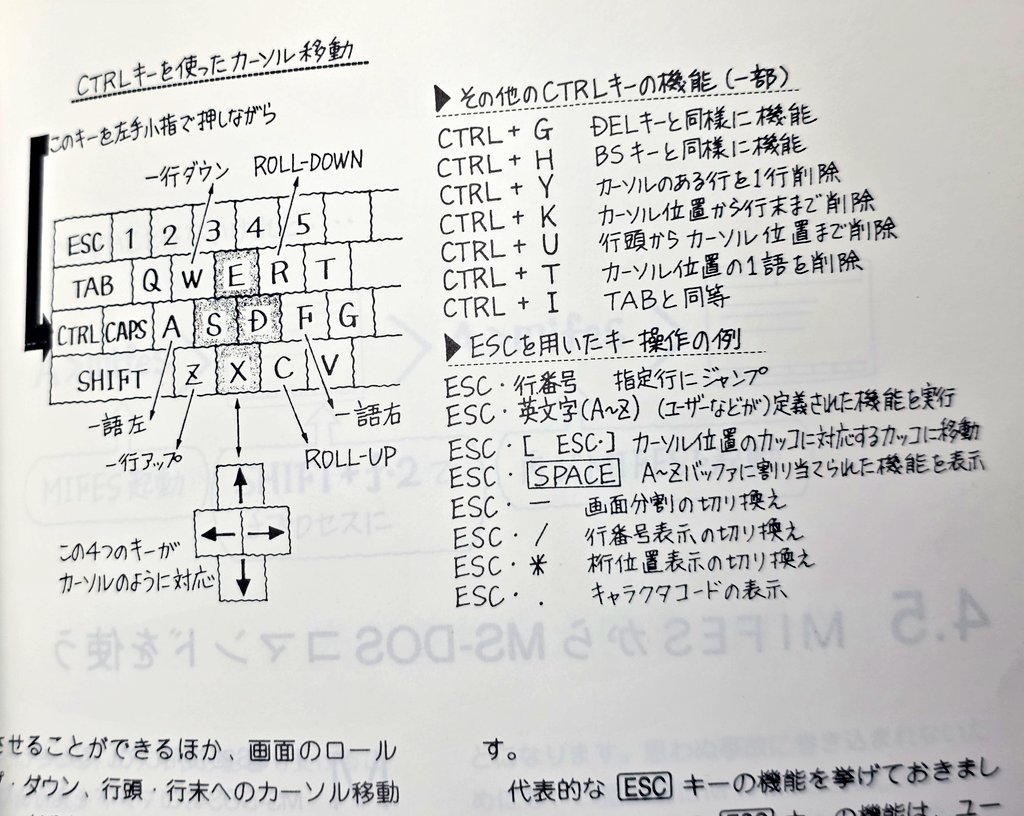 CTRLキーを使ったカーソル移動
このキーを左手小指で押しながら
一行ダウン ROLL-DOWN
ESC 1 2 3 4 5
TAB Q W E R T
CTRL CAPS A S D F G
SHIFT Z X C V
一語左 一語右
一行アップ ROLL-UP
この4つのキーが
カーソルのように対応
▶その他のCTRLキーの機能(一部)
CTRL + G DELキーと同様に機能
CTRL + H BSキーと同様に機能
CTRL + Y カーソルのある行を1行削除
CTRL + K カーソル位置から行末まで削除
CTRL + U 行頭からカーソル位置まで削除
CTRL + T カーソル位置の1語を削除
CTRL + I TABと同等
▶ESCを用いたキー操作の例
ESC・行番号 指定行にジャンプ
ESC・英文字(A~Z) (ユーザーなどが)定義された機能を実行
ESC・[ ESC・] カーソル位置のカッコに対応するカッコに移動
ESC・SPACE A~Zバッファに割り当てられた機能を表示
ESC・− 画面分割の切り換え
ESC・/ 行番号表示の切り換え
ESC・* 桁位置表示の切り換え
ESC・. キャラクタコードの表示
4.5 MIFESからMS-DOSコマンドを使う
させることができるほか、画面のロール
・ダウン、行頭・行末へのカーソル移動
す。
代表的なESCキーの機能を挙げておきまし
キーの機能は、ユー